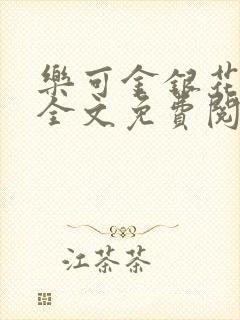 樂可金銀花
全文免費閱
江茶茶